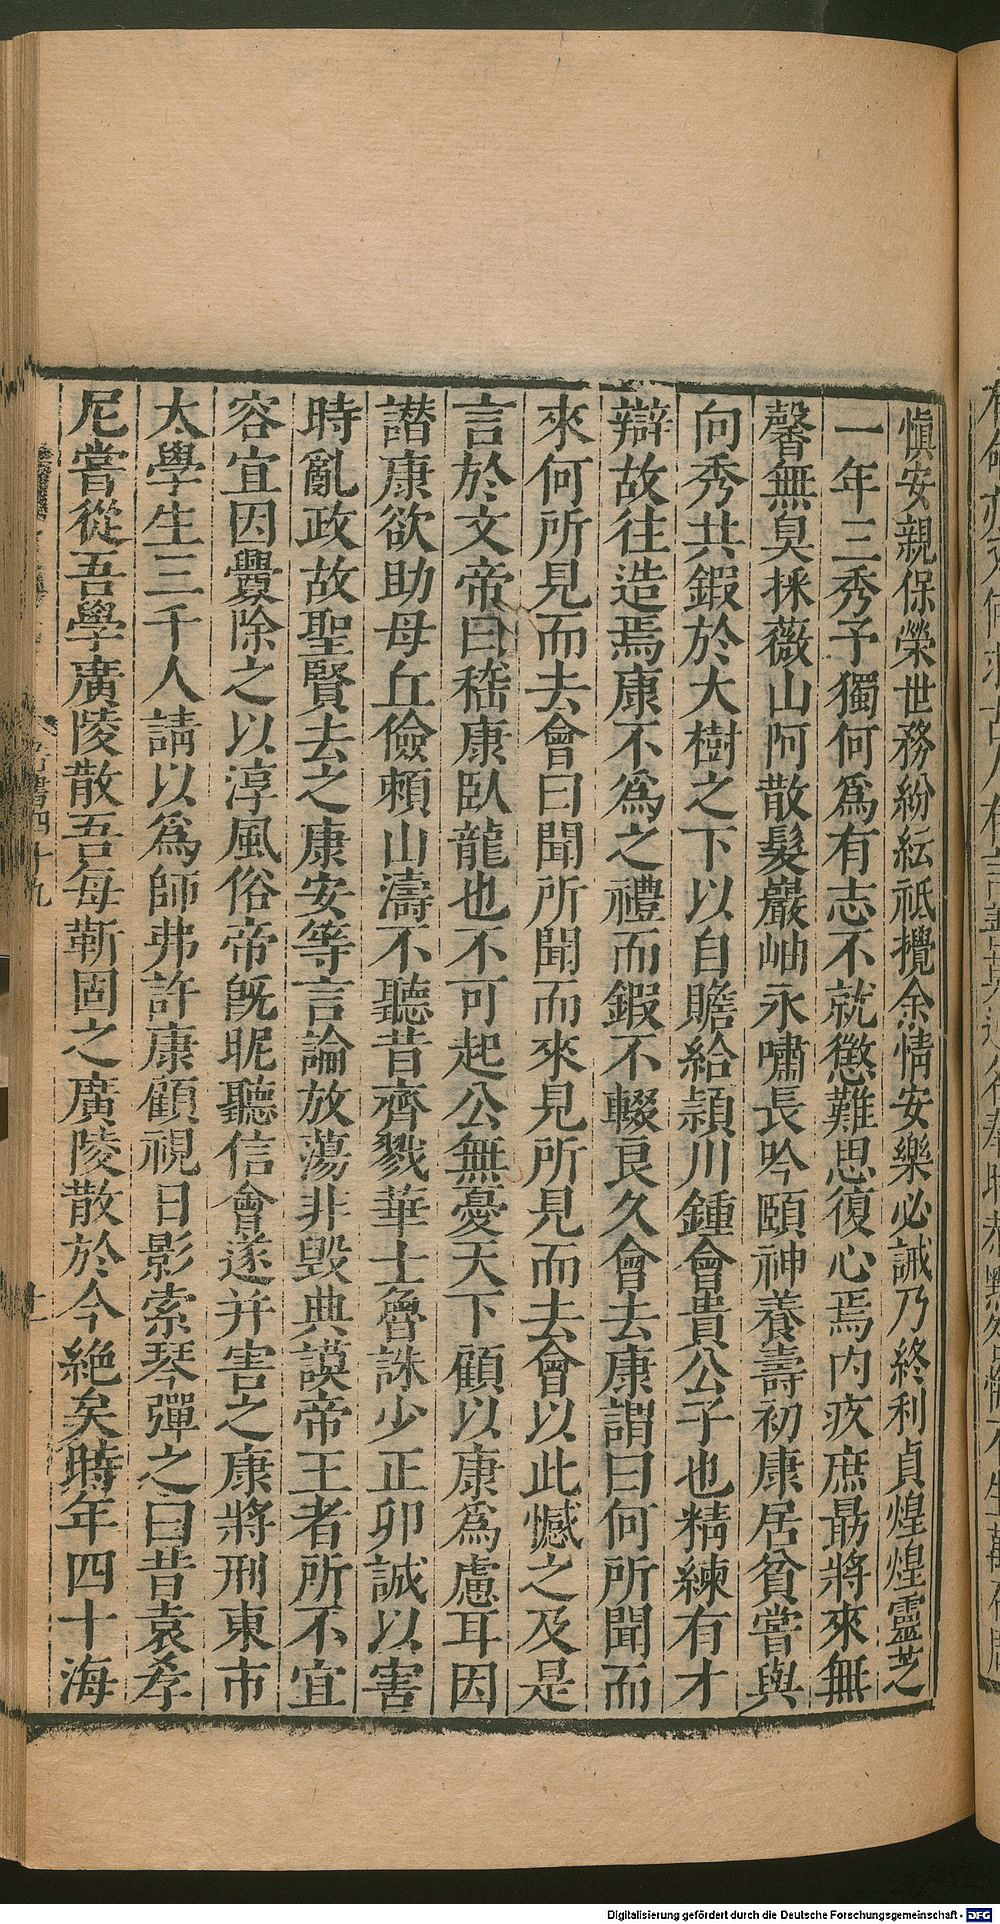 慎安親保榮世務紛紜祗攪余情安樂必誡乃終利貞煌煌靈芝
一年三秀予獨何爲有志不就懲難思復心焉内疚庶勗將來無
馨無臭採薇山阿散髮巖岫永嘯長吟頤神養壽初康居貧嘗與
向秀共鍛於大樹之下以自贍給潁川鍾會貴公子也精練有才
辯故往造焉康不爲之禮而鍛不輟良久會去康謂曰何所聞而
來何所見而去會曰聞所聞而來見所見而去會以此憾之及是
言於文帝曰嵇康臥龍也不可起公無憂天下顧以康爲慮耳因
譖康欲助毋丘儉賴山濤不聽昔齊戮華士魯誅少正卯誠以害
時亂政故聖賢去之康安等言論放蕩非毀典謨帝王者所不宜
容宜因釁除之以淳風俗帝旣昵聽信會遂并害之康將刑東市
太學生三千人請以爲師弗許康顧視日影索琴彈之曰昔袁孝
尼嘗從吾學廣陵散吾每靳固之廣陵散於今絶矣時年四十海
晉書四十九
十一
Digitalisierung gefördert durch die Deutsche Forschungsgemeinschaft - DFG